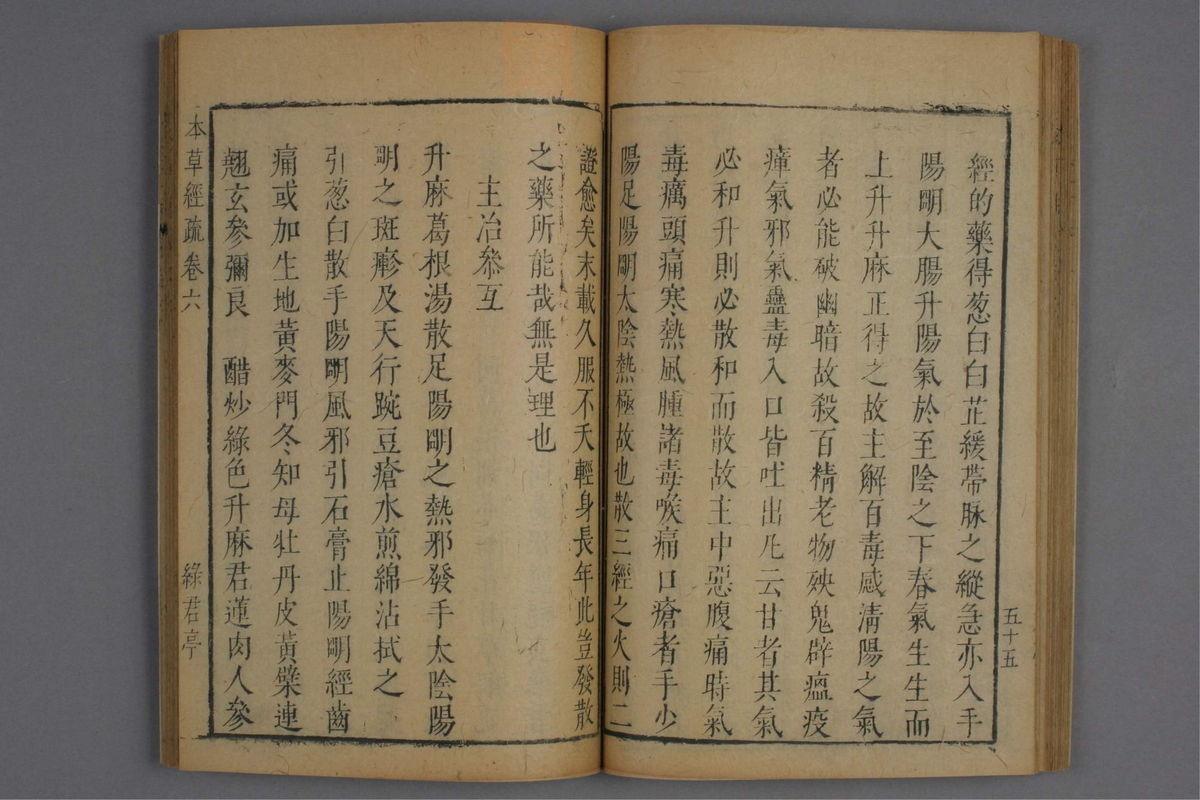 五十五
經的藥得葱白白芷緩帶脉之縱急亦入手
陽明大腸升陽氣於至陰之下春氣生生而
上升升麻正得之故主解百毒感淸陽之氣
者必能破幽暗故殺百精老物殃鬼辟瘟疫
瘴氣邪氣蠱毒入口皆吐出凡云甘者其氣
必和升則必散和而散故主中惡腹痛時氣
毒癘頭痛寒熱風腫諸毒喉痛口瘡者手少
陽足陽明太陰熱極故也散三經之火則二
證愈矣末載久服不夭輕身長年此豈發散
之藥所能哉無是理也
主治叅互
升麻葛根湯散足陽明之熱邪發手太陰陽
明之斑瘮及天行踠豆瘡水煎綿沾拭之
引葱白散手陽明風邪引石膏止陽明經齒
痛或加生地黃麥門冬知母牡丹皮黃檗連
翹玄參彌良　醋炒綠色升麻君蓮肉人參
本草經疏卷六
綠君亭